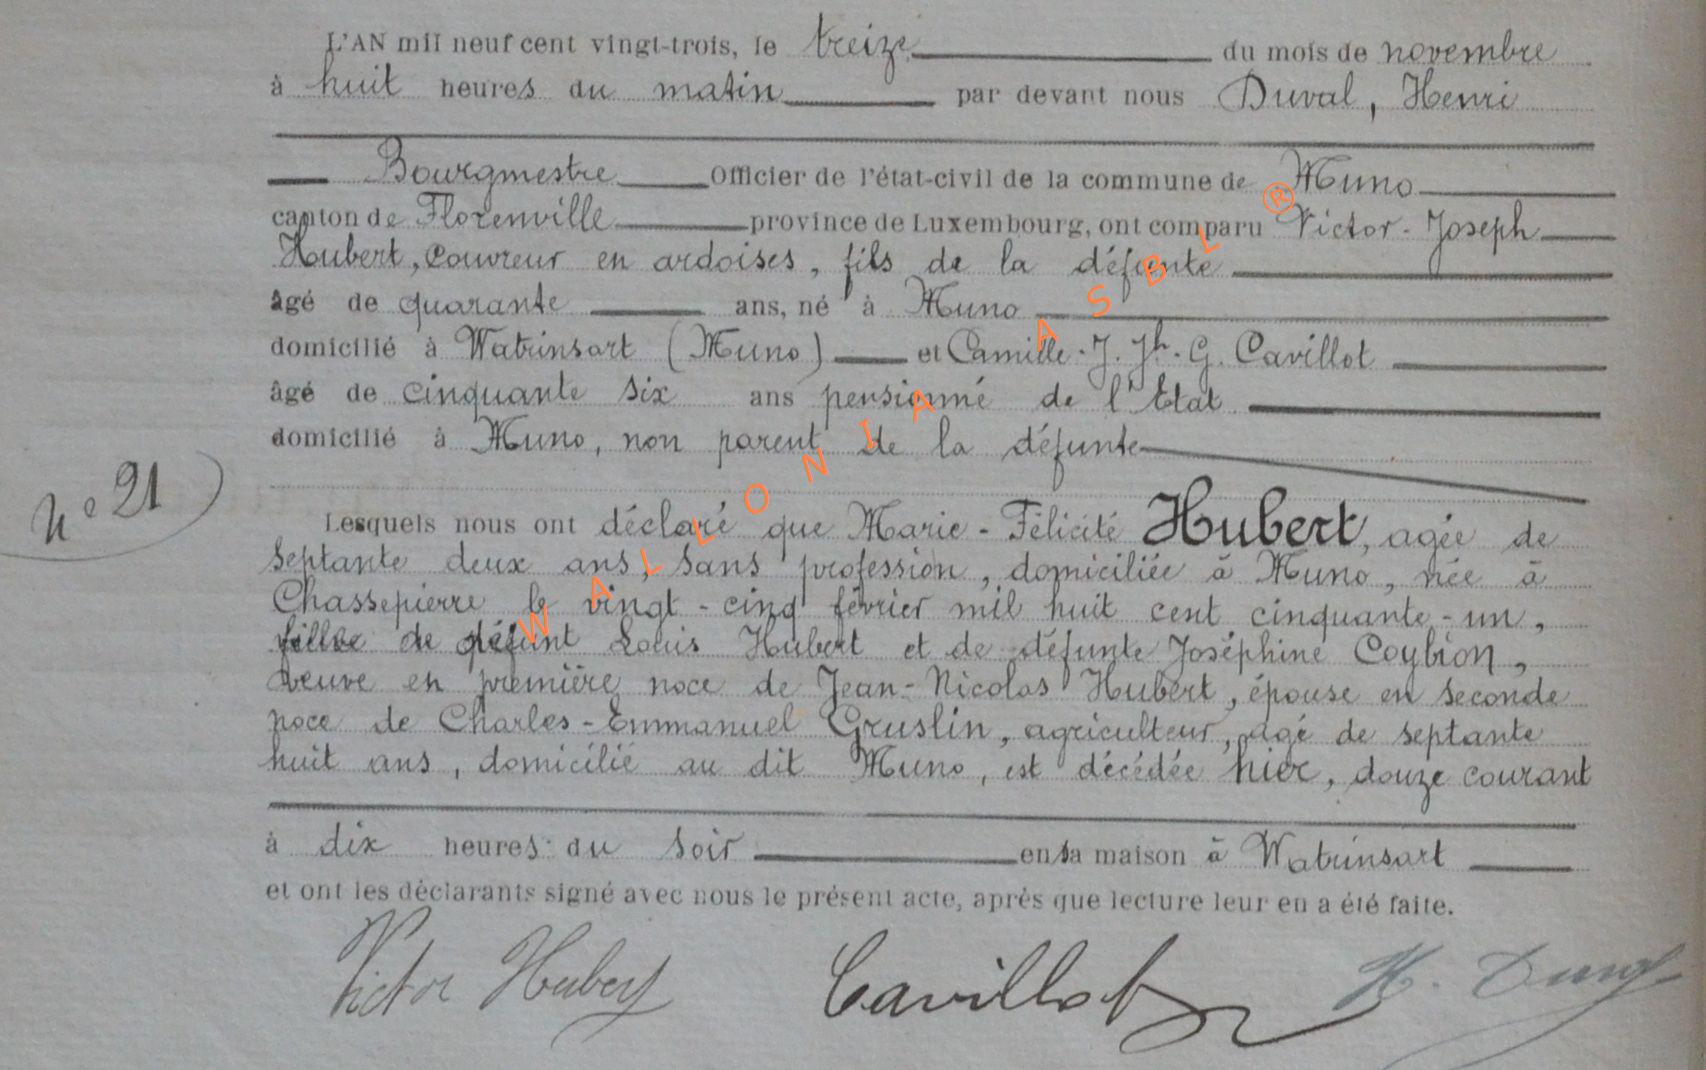 L'AN mil neuf cent vingt-trois, le treize du mois de novembre
à huit heures du matin par devant nous Duval, Henri
Bourgmestre Officier de l'état-civil de la commune de Muno
canton de Florenville province de Luxembourg, ont comparu Victor-Joseph
Hubert, couvreur en ardoises, fils de la défunte
âgé de quarante ans, né à Muno
domicilié à Watrinsart (Muno) et Camille-J. Jh. G. Cavillot
âgé de cinquante six ans pensionné de l'Etat
domicilié à Muno, non parent de la défunte
N° 21
Lesquels nous ont déclaré que Marie-Félicité Hubert, agée de
septante deux ans, sans profession, domiciliée à Muno, née à
Chassepierre le vingt-cinq février mil huit cent cinquante-un,
fille de défunt Louis Hubert et de défunte Joséphine Coybion,
veuve en première noce de Jean-Nicolas Hubert, épouse en seconde
noce de Charles-Emmanuel Gruslin, agriculteur, agé de septante
huit ans, domicilié au dit Muno, est décédée hier, douze courant
à dix heures du soir en sa maison à Watrinsart
et ont les déclarants signé avec nous le présent acte, après que lecture leur en a été faite.
Victor Hubert Cavillot H. Duval
WALLONIA ASBL ®